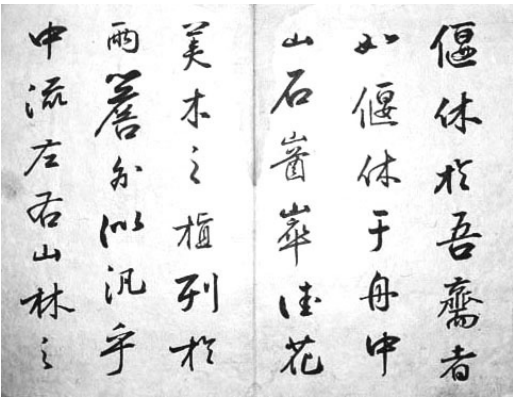 偃休於吾齋者
如偃休于舟中
山石崷崒佳花
美木之植列於
兩簷外似汎乎
中流左右山林之